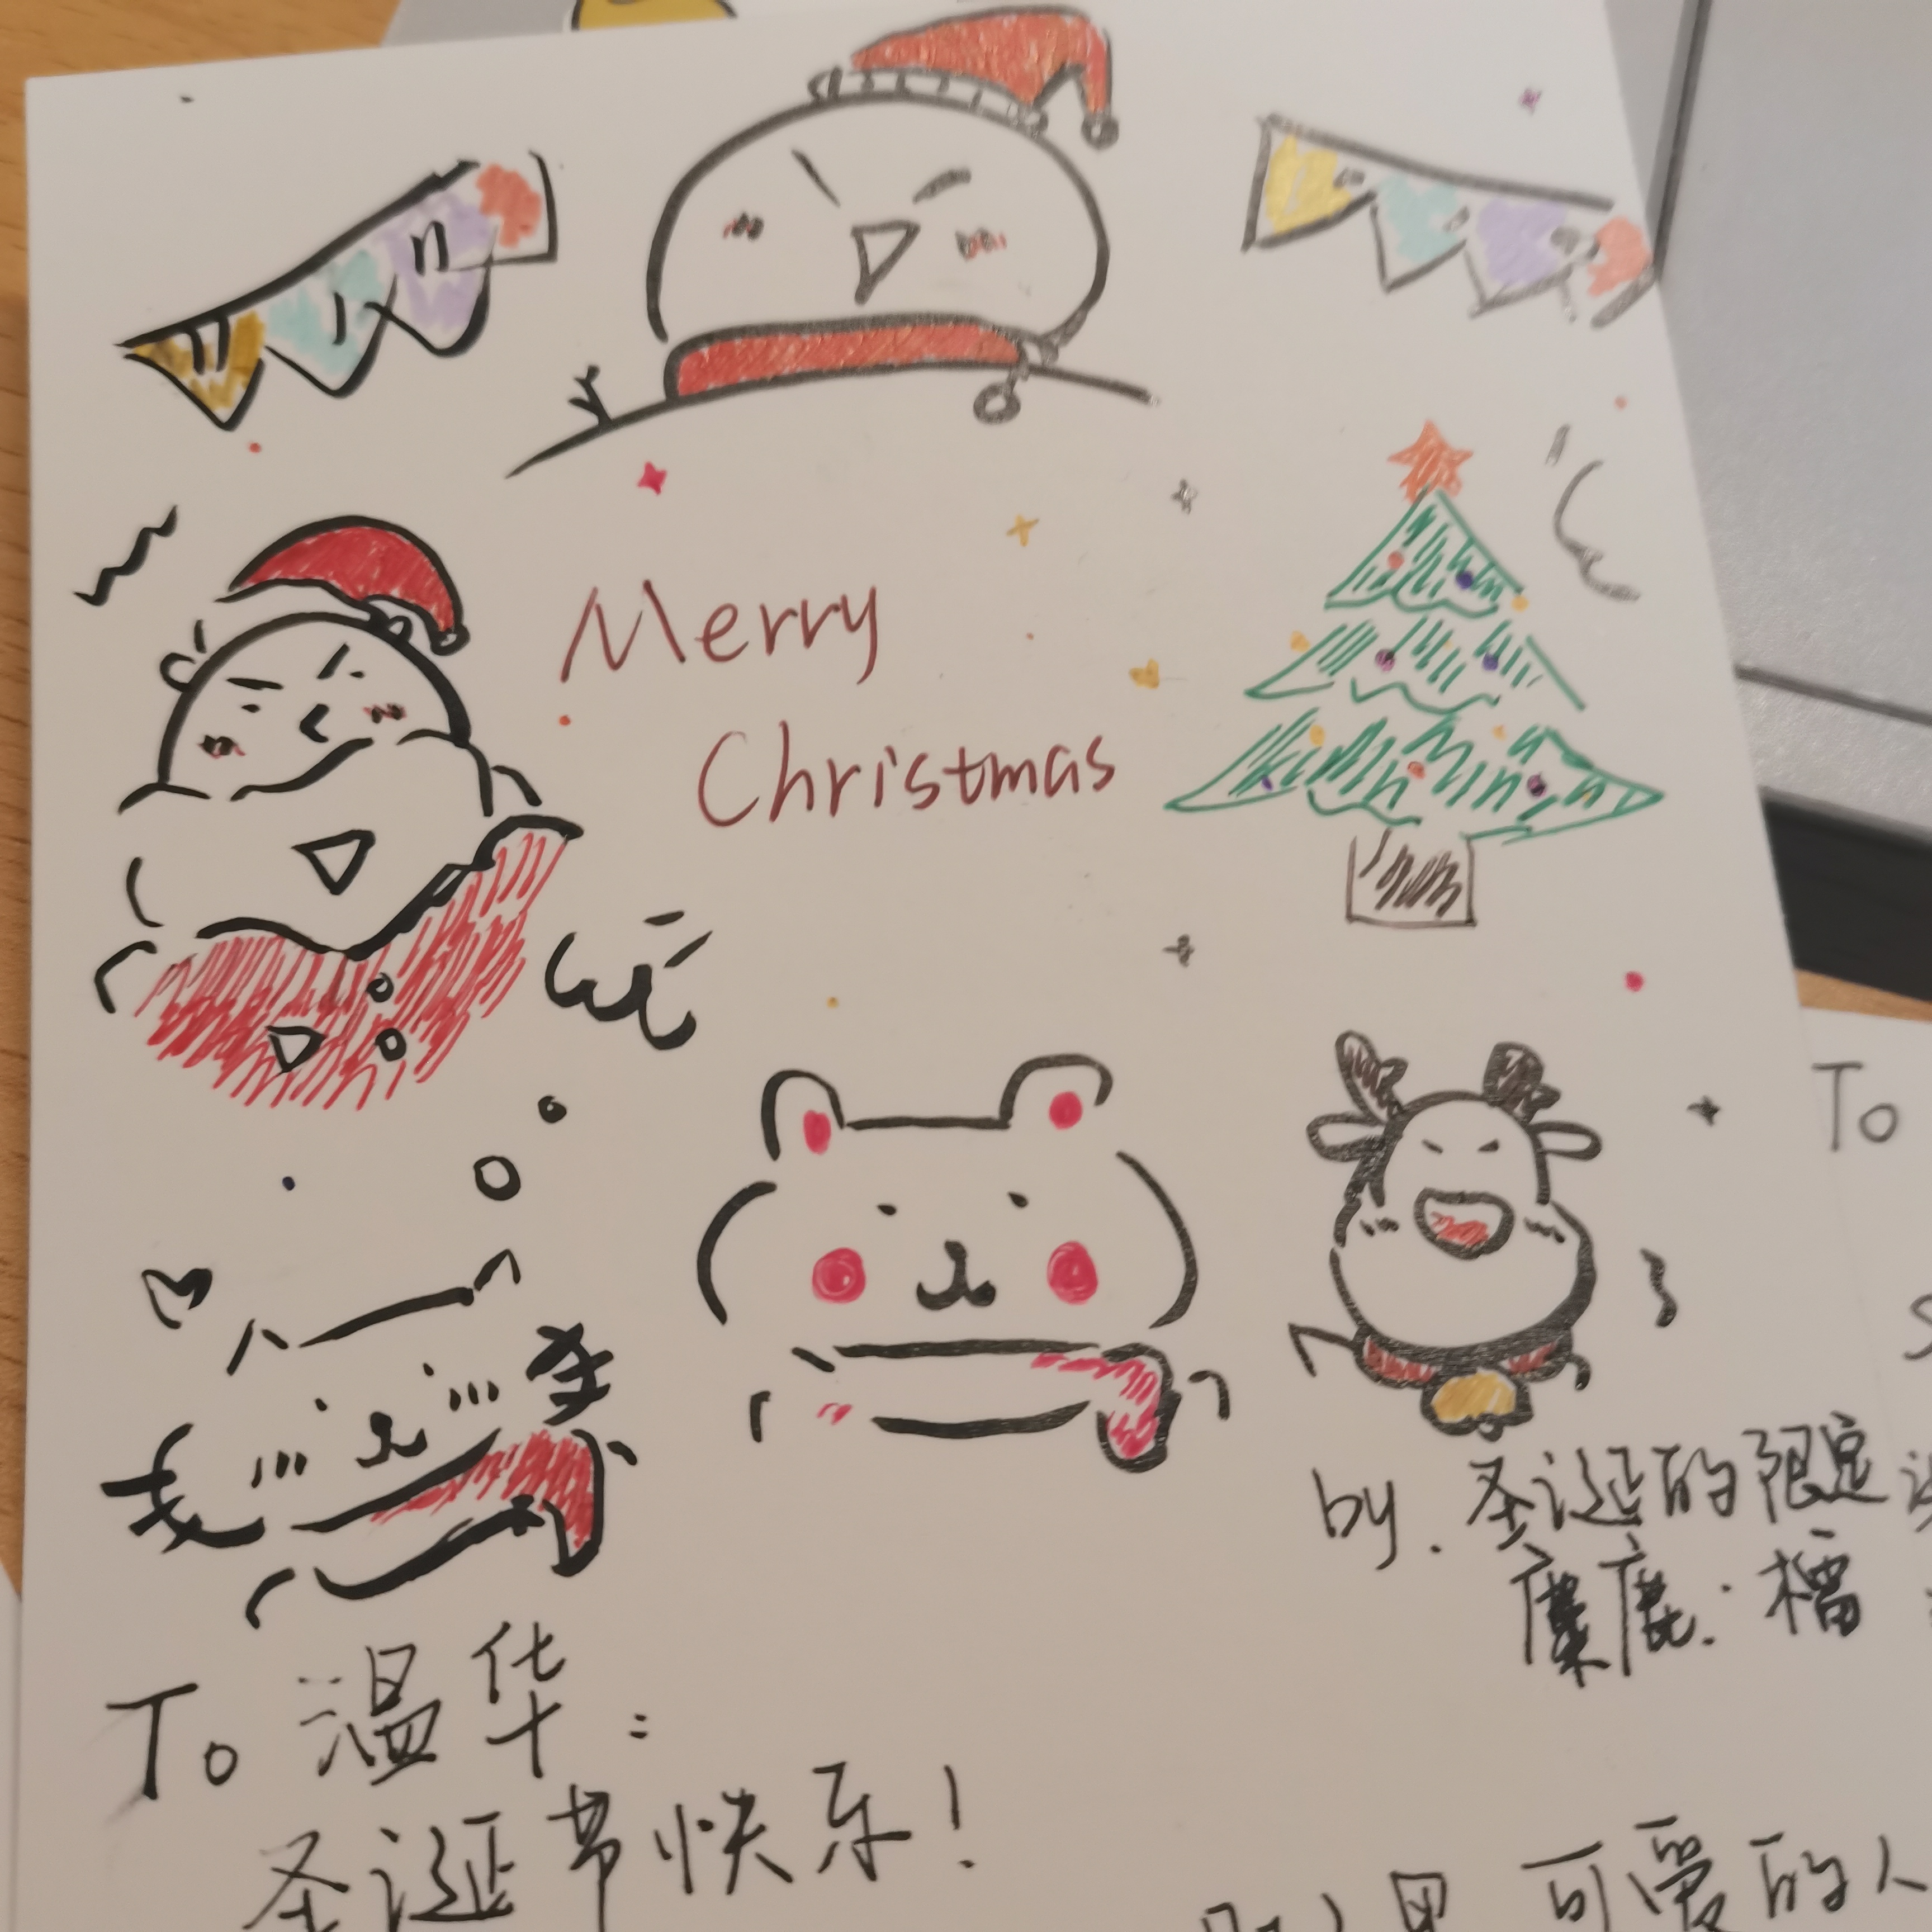 Merry
Christmas
To
by. 圣诞的限定
麋鹿: 檑
To 温华:
圣诞节快乐!
可爱的人